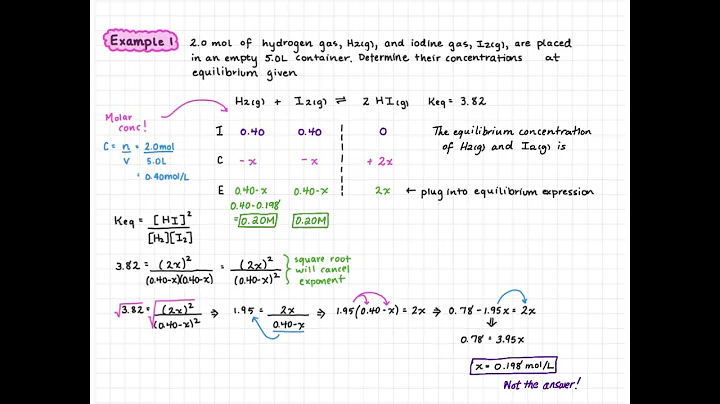 Example 1
2.0 mol of hydrogen gas, H2(g), and iodine gas, I2(g), are placed
in an empty 5.0L container. Determine their concentrations at
equilibrium given
H2(g) + I2(g) ⇌ 2 HI(g) Keq = 3.82
Molar
conc!
C = n/V = 2.0mol/5.0L
= 0.40mol/L
I 0.40 0.40 0
C -x -x +2x
E 0.40-x 0.40-x 2x ← plug into equilibrium expression
0.40-0.198
= 0.20M 0.20M
The equilibrium concentration
of H2(g) and I2(g) is
Keq = [HI]²/[H2][I2]
3.82 = (2x)²/(0.40-x)(0.40-x) = (2x)²/(0.40-x)²
square root
will cancel
exponent
√3.82 = √(2x)²/(0.40-x)² ⇒ 1.95 = 2x/0.40-x ⇒ 1.95(0.40-x) = 2x ⇒ 0.78-1.95x = 2x
⇓
0.78 = 3.95x
x = 0.198 mol/L
Not the answer!